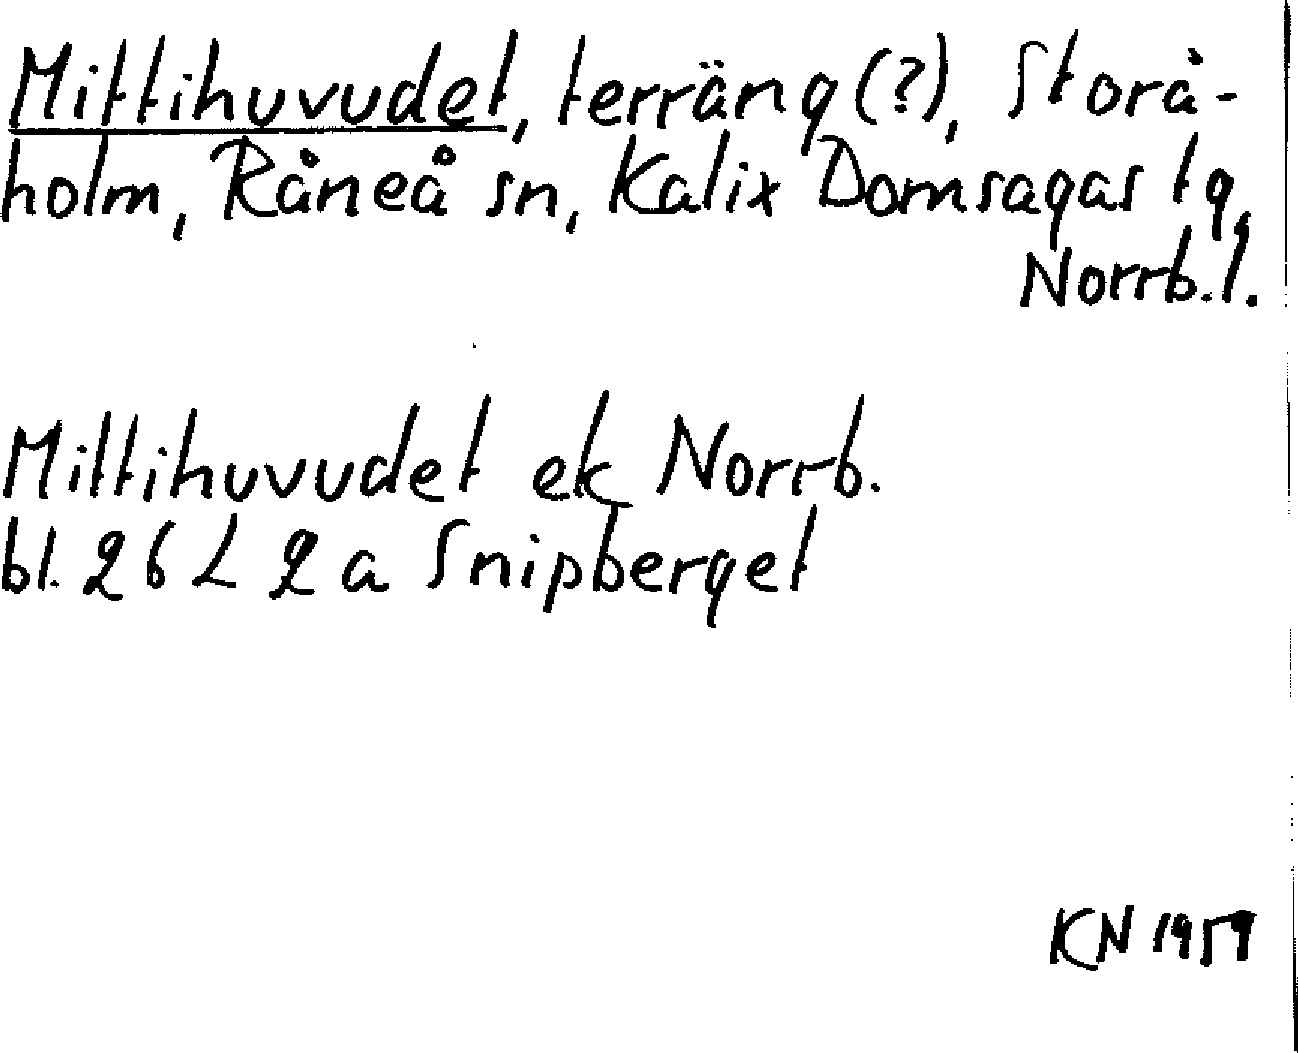 Mittihuvudet, terräng (?), Storå-
holm, Råneå sn, Kalix Domsagas tg,
Norrb.l.
Mittihuvudet ek Norrb.
bl. 26 L 2 a Snipberget
KN 1959